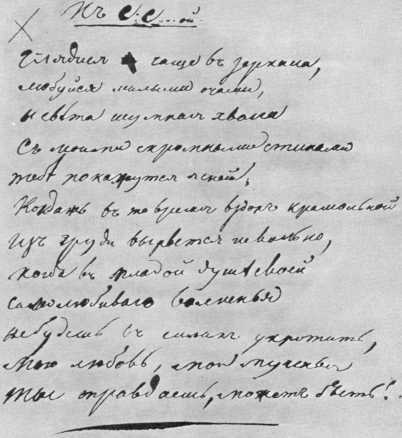 Къ С. С....ой.
Глядися чаще въ зеркала,
любуйся милыми очами,
и свѣта шумная хвала
Съ моими скромными стихами
тебѣ покажутся ясней;
Когдажъ въ то время вздохъ крамольной
Изъ груди вырвется невольно,
когда въ младой душѣ своей
самолюбиваго волненья
не будешь въ силахъ укротить,
Мою любовь, мои мученья
Ты оправдаешь, можетъ быть!